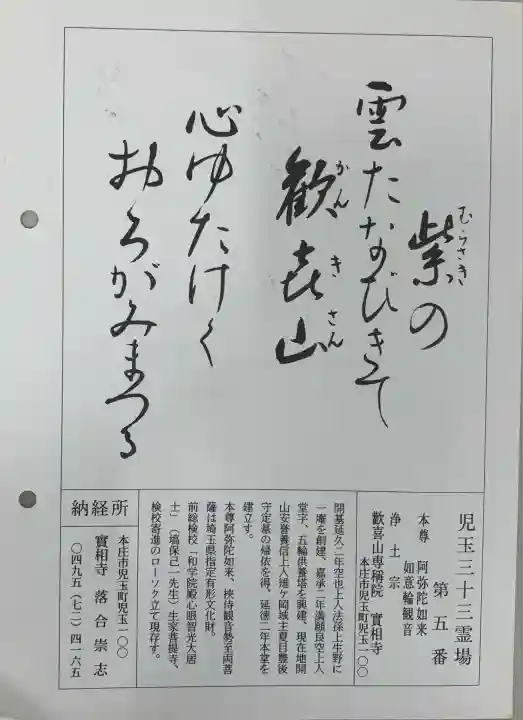 紫の
むらさき
雲たなびきて
歓喜山
かんきさん
心ゆたけく
おろがみまつる
児玉三十三霊場
第五番
本尊 阿弥陀如来
如意輪観音
浄土宗
歡喜山専稱院 實相寺
本庄市児玉町児玉一〇〇
開基延久二年空也上人法孫上人生野に
一庵を創建、嘉承二年満願良空上人
堂宇、五輪供養塔を興建、現在地開
山安誉養信上人雉ヶ岡城主夏目豊後
守定基の帰依を得、延徳二年本堂を
建立す。
本尊阿弥陀如来、挾侍観音勢至両菩
薩は埼玉県指定有形文化財。
前総検校「和学院殿心眼智光大居
士」(塙保己一先生)生家菩提寺、
検校寄進のローソク立て現存す。
納経所
本庄市児玉町児玉一〇〇
實相寺 落合崇志
〇四九五(七二)四一六五